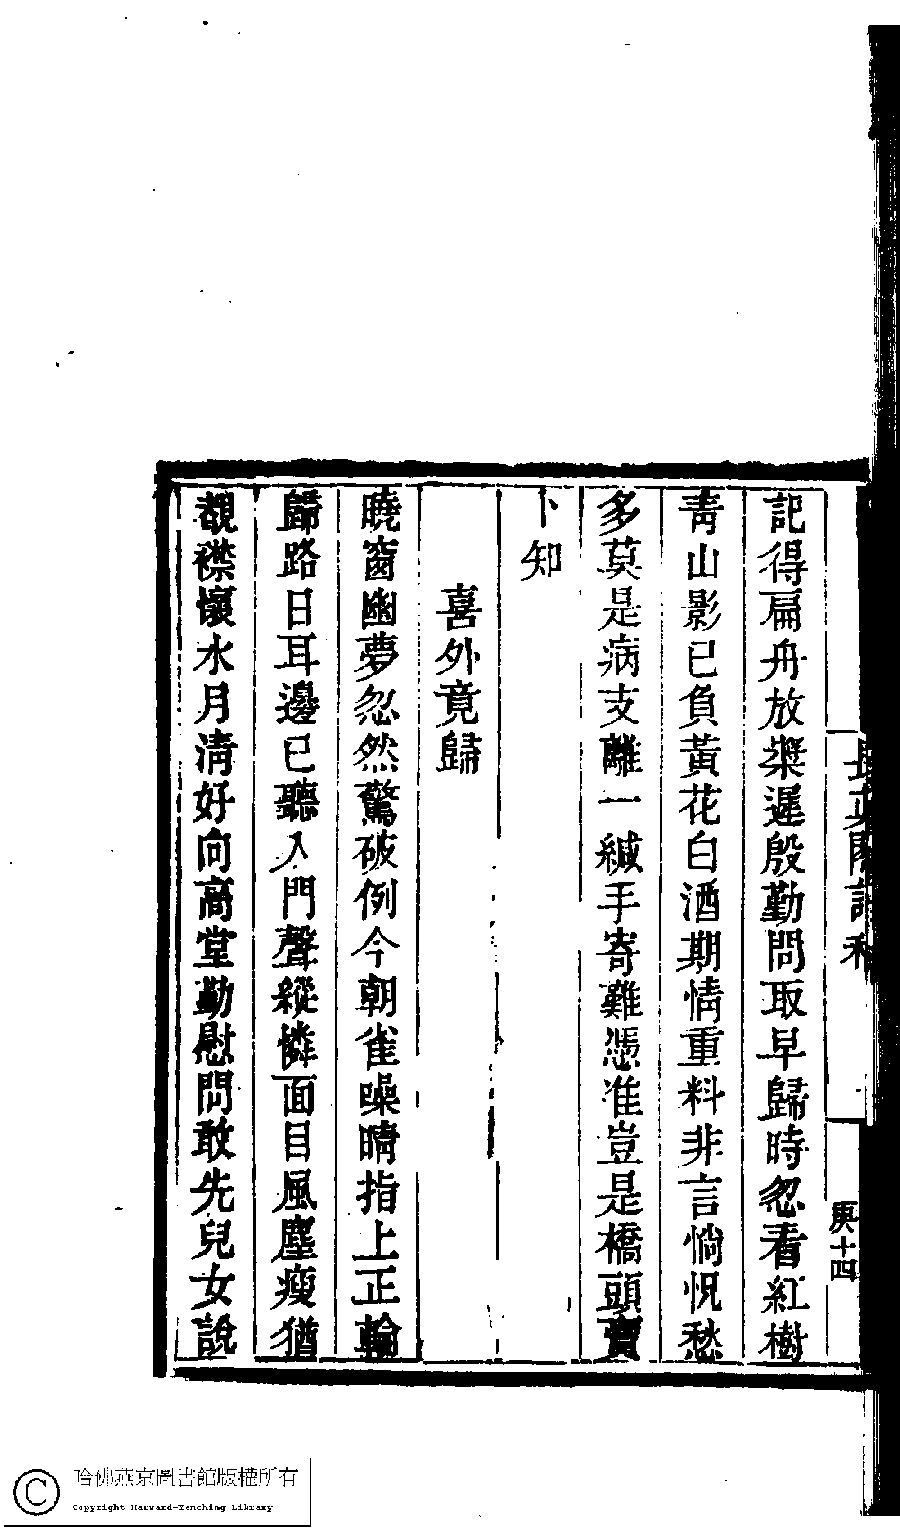 記得扁舟放槳遲殷勤問取早歸時忽看紅樹
青山影已負黃花白酒期情重料非言惝怳愁
多莫是病支離一緘手寄難憑准豈是橋頭賣
卜知
喜外竟歸
曉窗幽夢忽然驚破例今朝雀噪晴指上正輪
歸路日耳邊已聽入門聲縱憐面目風塵瘦猶
覩襟懷水月清好向高堂勤慰問敢先兒女說
庚十四
哈佛燕京圖書館版權所有
Copyright Harvard-Yenching Library